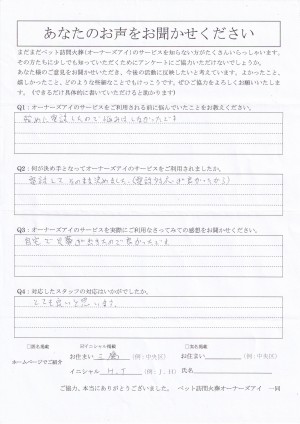 あなたのお声をお聞かせください
まだまだペット訪問火葬(オーナーズアイ)のサービスを知らない方がたくさんいらっしゃいます。
その方たちに少しでも知っていただくためにアンケートにご協力いただけないでしょうか。
あなた様のご意見をお聞かせいただき、今後の活動に反映したいと考えています。よかったこと、
嬉しかったこと、どのような些細なことでもけっこうです。ぜひご協力をよろしくお願いいたします。
(できるだけ具体的に書いていただけると助かります)
Q1：オーナーズアイのサービスをご利用される前に悩んでいたことをお教えください。
初めに電話したので悩みはしなかったです
Q2：何が決め手となってオーナーズアイのサービスをご利用されましたか。
電話してそのまま決めました。(電話対応が良かったから)
Q3：オーナーズアイのサービスを実際にご利用なさってみての感想をお聞かせください。
自宅で火葬が出来たので良かったです
Q4：対応したスタッフの対応はいかがでしたか。
とても良いと思います。
□匿名掲載 ☑イニシャル掲載 □実名掲載
ホームページでご紹介 お住まい 三鷹 (例：中央区) お住まい (例：中央区)
イニシャル H.T (例：J．H) 氏名
ご協力、本当にありがとうございました。 ペット訪問火葬オーナーズアイ 一同